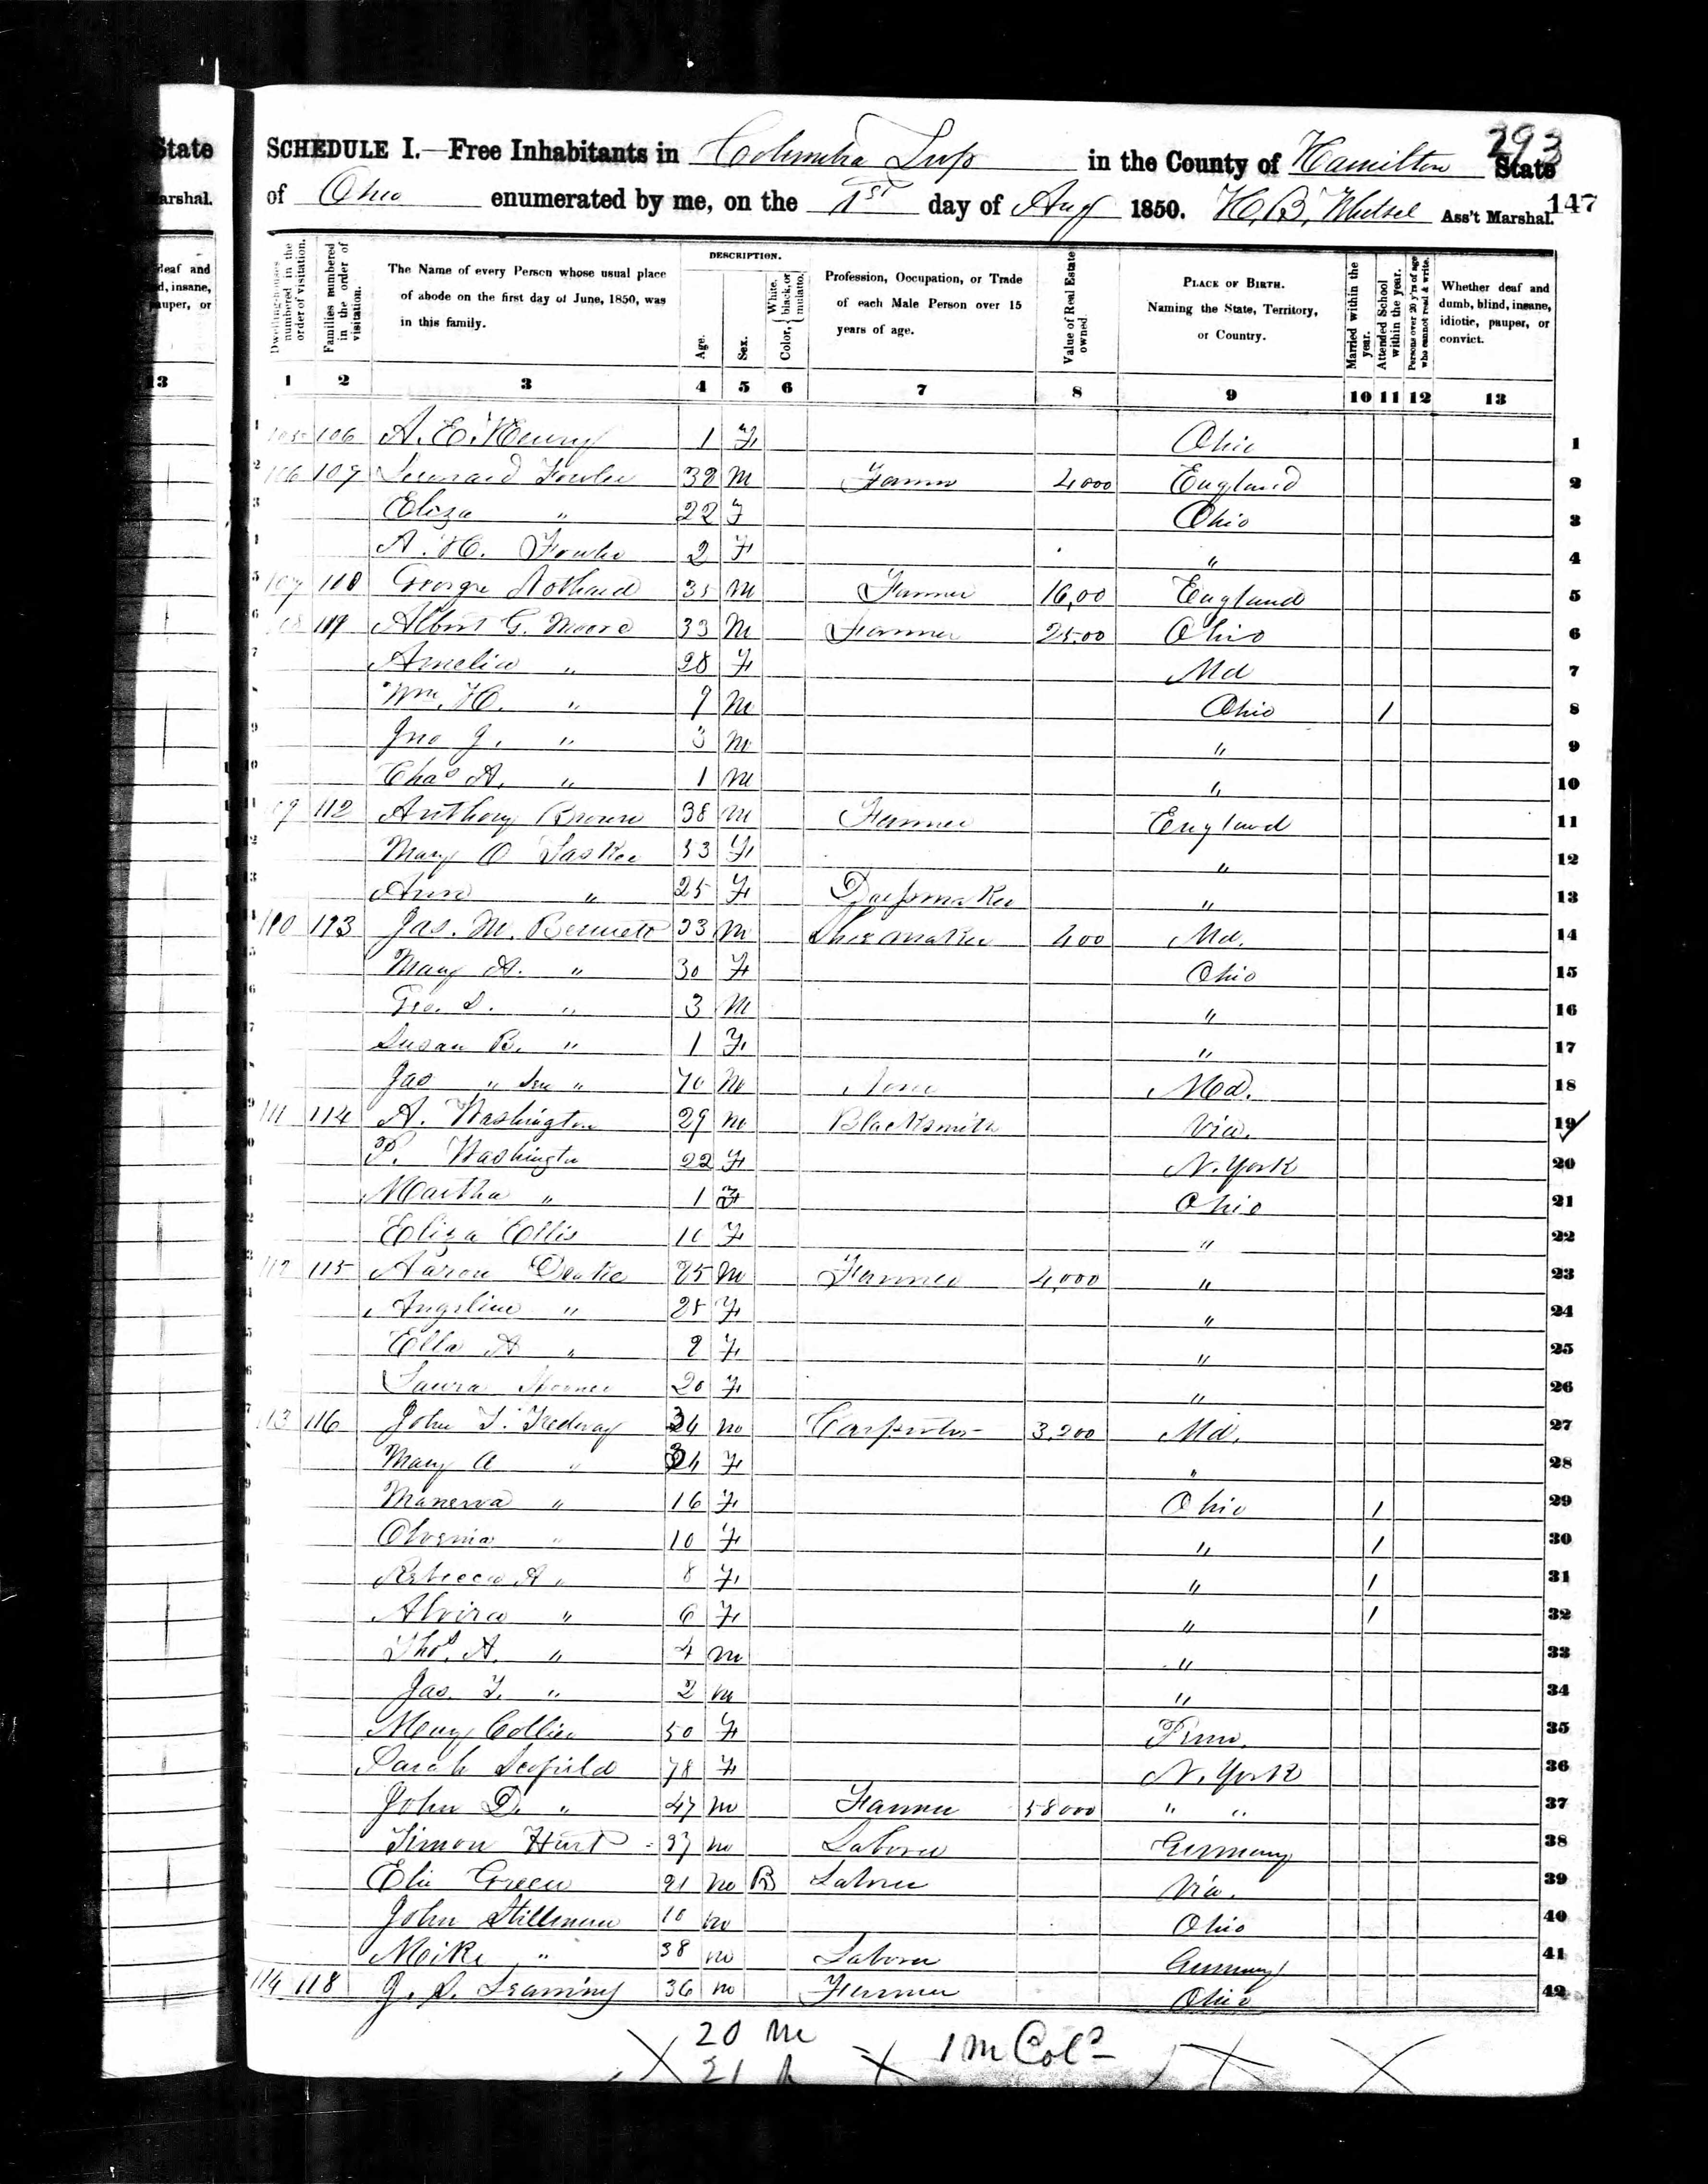 State
Marshal.
deaf and
d, insane,
pauper, or
13
293
SCHEDULE I.—Free Inhabitants in Columbia Twp in the County of Hamilton State
of Ohio enumerated by me, on the 1st day of Aug 1850. H. B. Ass't Marshal.
147
Dwelling-houses numbered in the order of visitation.
Families numbered in the order of visitation.
The Name of every Person whose usual place of abode on the first day of June, 1850, was in this family.
DESCRIPTION.
Age.
Sex.
Color, { White, black, or mulatto.
Profession, Occupation, or Trade of each Male Person over 15 years of age.
Value of Real Estate owned.
PLACE OF BIRTH. Naming the State, Territory, or Country.
Married within the year.
Attended School within the year.
Persons over 20 y'rs of age who cannot read & write.
Whether deaf and dumb, blind, insane, idiotic, pauper, or convict.
1 2 3 4 5 6 7 8 9 10 11 12 13
1 106 A. E. Henry 1 F Ohio 1
2 106 109 Fowler 38 M Farmer 4000 England 2
3 Eliza " 22 F Ohio 3
A. H. Fowler 2 F " 4
5 107 110 George 35 M Farmer 16,00 England 5
6 Albert G. Moore 33 M Farmer 2500 Ohio 6
7 Amelia " 28 F Md 7
Wm. H. " 9 M Ohio 1 8
9 Jno J. " 3 M " 9
10 Chas A. " 1 M " 10
11 112 Anthony Brown 38 M Farmer England 11
12 Mary O 53 F " 12
13 Ann " 25 F Dressmaker " 13
110 113 Jas. M. Bennett 33 M Shoemaker 400 Md. 14
Mary A. " 30 F Ohio 15
16 Geo. S. " 3 M " 16
17 Susan B. " 1 F " 17
Jas " Sen " 70 M None Md. 18
111 114 A. Washington 29 M Blacksmith Via. 19
P. Washington 22 F N. York 20
Martha " 1 F Ohio 21
Eliza Ellis 10 F " 22
112 115 Aaron Drake 25 M Farmer 4,000 " 23
Angeline " 25 F " 24
Ella A " 2 F " 25
Laura 20 F " 26
113 116 John T. Tredway 34 M Carpenter 3,200 Md. 27
Mary A " 34 F " 28
Manerva " 16 F Ohio 1 29
" 10 F " 1 30
Rebecca A " 8 F " 1 31
Alvira " 6 F " 1 32
Thos. A. " 4 M " 33
Jas. T. " 2 M " 34
Mary Collier 50 F Penn. 35
Sarah Scofield 78 F N. York 36
John D. " 47 M Farmer 58000 " " 37
Simon Hurt 37 M Laborer Germany 38
Eli Green 21 M B Laborer Via. 39
John Stillman 10 M Ohio 40
Mike " 38 M Laborer Germany 41
114 118 J. S. Leaming 36 M Farmer Ohio 42
20 M
21 1 M Col